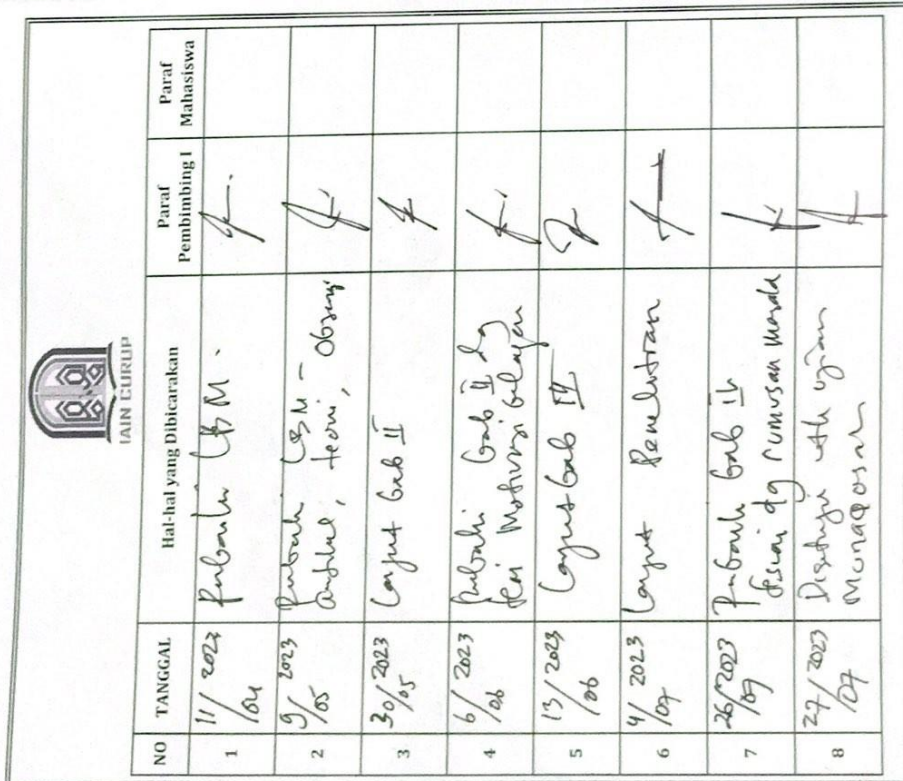 IAIN CURUP
NO TANGGAL Hal-hal yang Dibicarakan Paraf Pembimbing I Paraf Mahasiswa
1 11/04 2023 Perbaiki LBM.
2 9/05 2023 Perbaiki LBM –
artikel, teori, Obsevi
3 30/05 2023 Lanjut bab II
4 6/06 2023 Perbaiki bab II dg
teori Motivasi belajar
5 13/06 2023 Lanjut bab IV
6 4/07 2023 Lanjut Penelitian
7 26/07 2023 Perbaiki bab IV
sesuai dg rumusan masalah
8 27/07 2023 Disetujui utk ujian
Munaqosah